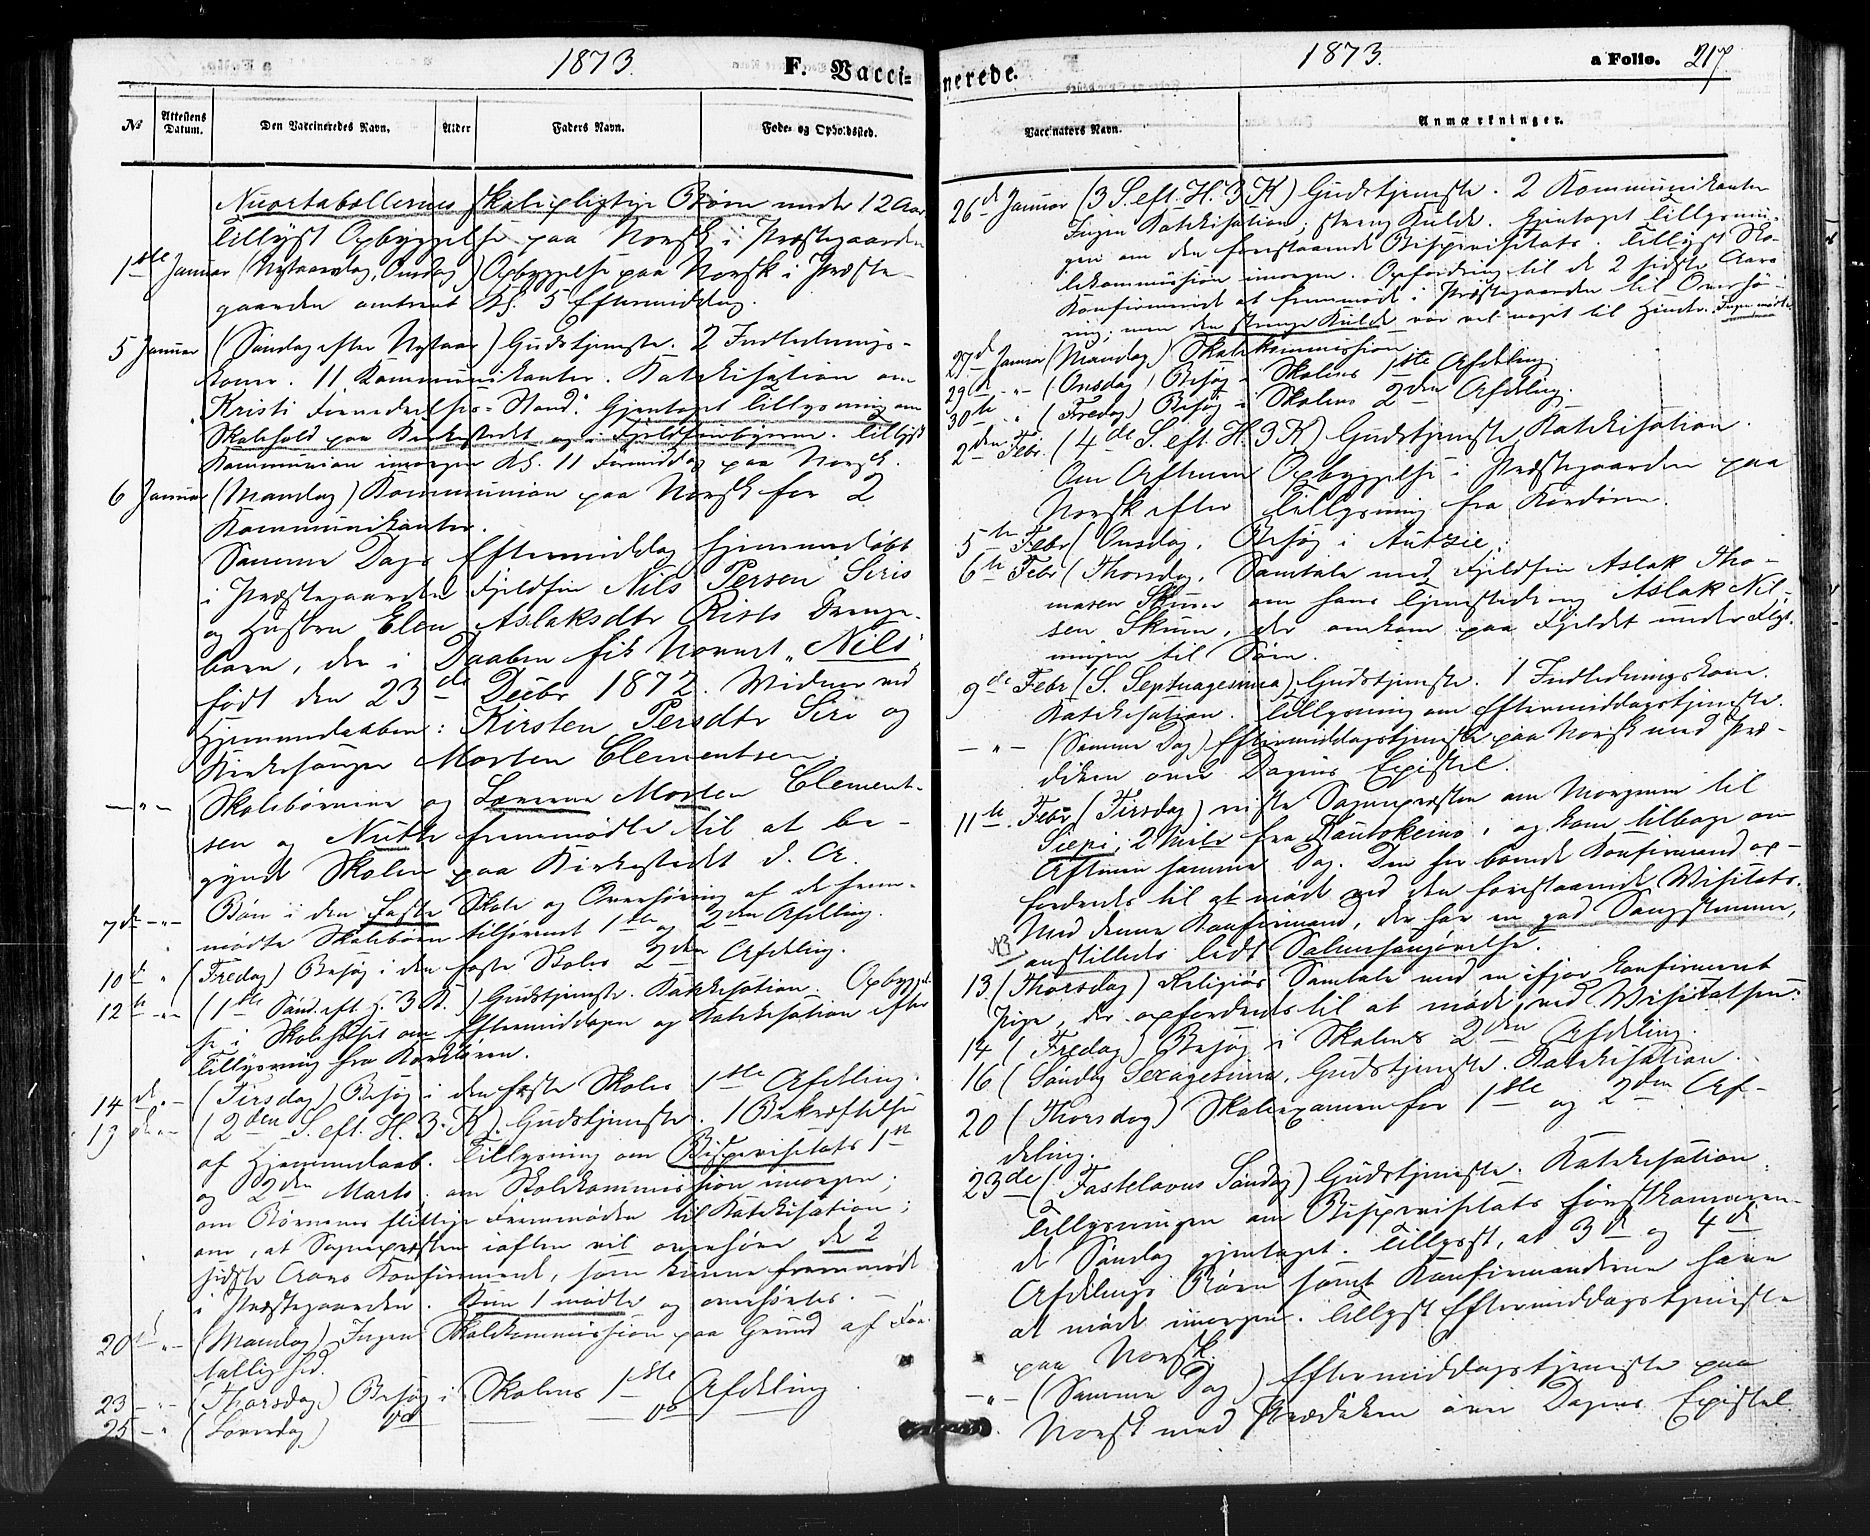 1873.
F. Vacci-
№
Attestens Datum.
Den Vaccineredes Navn.
Alder
Faders Navn.
Føde- og Opholdssted.
Nuortabellernes skolepligtige Børn under 12 Aar.
Tillyst Opbyggelse paa Norsk i Præstegaarden
1ste Januar (Nytaarsdag, Onsdag) Opbyggelse paa Norsk i Præste-
gaarden omtrent Kl. 5 Eftermiddag.
5 Januar (Søndag efter Nytaar) Gudstjeneste. 2 Indlednings-
koner. 11 Kommunikanter. Katekisation om
"Kristi Fornedrelses-Stand". Gjentaget Tillysning om
Skolehold paa Kirkestedet og i Fjeldfinbyerne. Tillyst
Kommunion imorgen Kl. 11 Formiddag paa Norsk.
6 Januar (Mandag) Kommunion paa Norsk for 2
Kommunikanter.
Samme Dags Eftermiddag hjemmedøbt
i Præstegaarden Fjeldfin Nils Persen Siris
og Hustru Elen Aslaksdtr Rists Drenge-
barn, der i Daaben fik Navnet "Nils"
født den 23de Decbr 1872. Widner ved
Hjemmedaaben: Kirsten Persdtr Siri og
Kirkesanger Morten Clementsen.
— " — Skolebørnene og Lærerne Morten Clement-
sen og Nutte fremmødte til at be-
gynde Skolen paa Kirkestedet d. A.
7de — " — Bøn i den faste Skole og Overhøring af de frem-
mødte Skolebørn tilhørende 1ste og 2den Afdeling.
10de " (Fredag) Besøg i den faste Skoles 2den Afdeling.
12te — " — (1ste Sønd. eft. H. 3 K.) Gudstjeneste. Katekisation. Opbyggel-
se i Skolehuset om Eftermiddagen og Katekisation efter
Tillysning fra Kordøren.
14de " — (Tirsdag) Besøg i den faste Skoles 1ste Afdeling.
19de " — (2den S. eft. H. 3. K). Gudstjeneste. 1 Bekræftelse
af Hjemmedaab. Tillysning om Bispevisitats 1ste
og 2den Marts; om Skolekommission imorgen;
om Børnenes flittige Fremmøden til Katekisation;
om, at Sognepresten iaften vil overhøre de 2
sidste Aars Konfirmerede, som kunne fremmøde
i Præstegaarden. Kun 1 mødte og overhørtes. —
20de " — (Mandag) Ingen Skolekommission paa Grund af Faa-
tallighed.
23 — " — (Thorsdag) Besøg i Skolens 1ste Afdeling.
25 — " (Løverdag) do do
1873.
a Folio. 217
nerede.
Vaccinators Navn.
Anmærkninger.
26de Januar (3 S. eft. H. 3 K) Gudstjeneste. 2 Kommunikanter
Ingen Katekisation; streng Kulde. Gjentaget Tillysnin-
gen om den forestaaende Bispevisitats. Tillyst Sko-
lekommission imorgen. Opfordring til de 2 sidste Aars
Konfirmerede at fremmøde i Præstegaarden til Overhø-
ring; men den strenge Kulde var vel noget til Hinder. Ingen mødte
27de Januar (Mandag) Skolekommission.
29de " — (Onsdag) Besøg i Skolens 1ste Afdeling.
30te " (Fredag) Besøg i Skolens 2den Afdeling.
2den Febr. (4de S. eft. H. 3 K) Gudstjeneste Katekisation.
Om Aftenen Opbyggelse i Præstegaarden paa
Norsk efter Tillysning fra Kordøren.
5te Febr (Onsdag. Besøg i Autzie.
6te Febr (Thorsdag. Samtale med Fjeldfin Aslak Tho-
masen Skum om hans Tjenestedreng Aslak Nil-
sen Skum, der omkom paa Fjeldet under Flyt-
ningen til Søen.
9de Febr (S. Septuagesima) Gudstjeneste. 1 Indledningskone.
Katekisation. Tillysning om Eftermiddagstjeneste.
— " — (Samme Dag) Eftermiddagstjeneste paa Norsk med Præ-
diken over Dagens Epistel.
11te Febr (Tirsdag) reiste Sognepresten om Morgenen til
Siepi, 2 Mile fra Kautokeino, og kom tilbage om
Aftenen samme Dag. Den her boende Konfirmand op-
fordredes til at møde ved den forestaaende Visitats.
NB Med denne Konfirmand, der har en god Sangstemme,
anstilledes lidt Salmesangøvelse.
13 (Thorsdag) Religiøs Samtale med en ifjor konfirmeret
Pige, der opfordredes til at møde ved Visitatsen.
14 (Fredag) Besøg i Skolens 2den Afdeling.
16 (Søndag Sexagesima. Gudstjeneste. Katekisation.
20 (Thorsdag) Skoleexamen for 1ste og 2den Af-
deling.
23de (Fastelavns Søndag) Gudstjeneste. Katekisation.
Tillysningen om Bispevisitats førstkommen-
de Søndag gjentaget. Tillyst, at 3de og 4de
Afdelings Børn samt Konfirmanderne have
at møde imorgen. Tillyst Eftermiddagstjeneste
paa Norsk.
— " — (Samme Dag) Eftermiddagstjeneste paa
Norsk med Prædiken over Dagens Epistel.